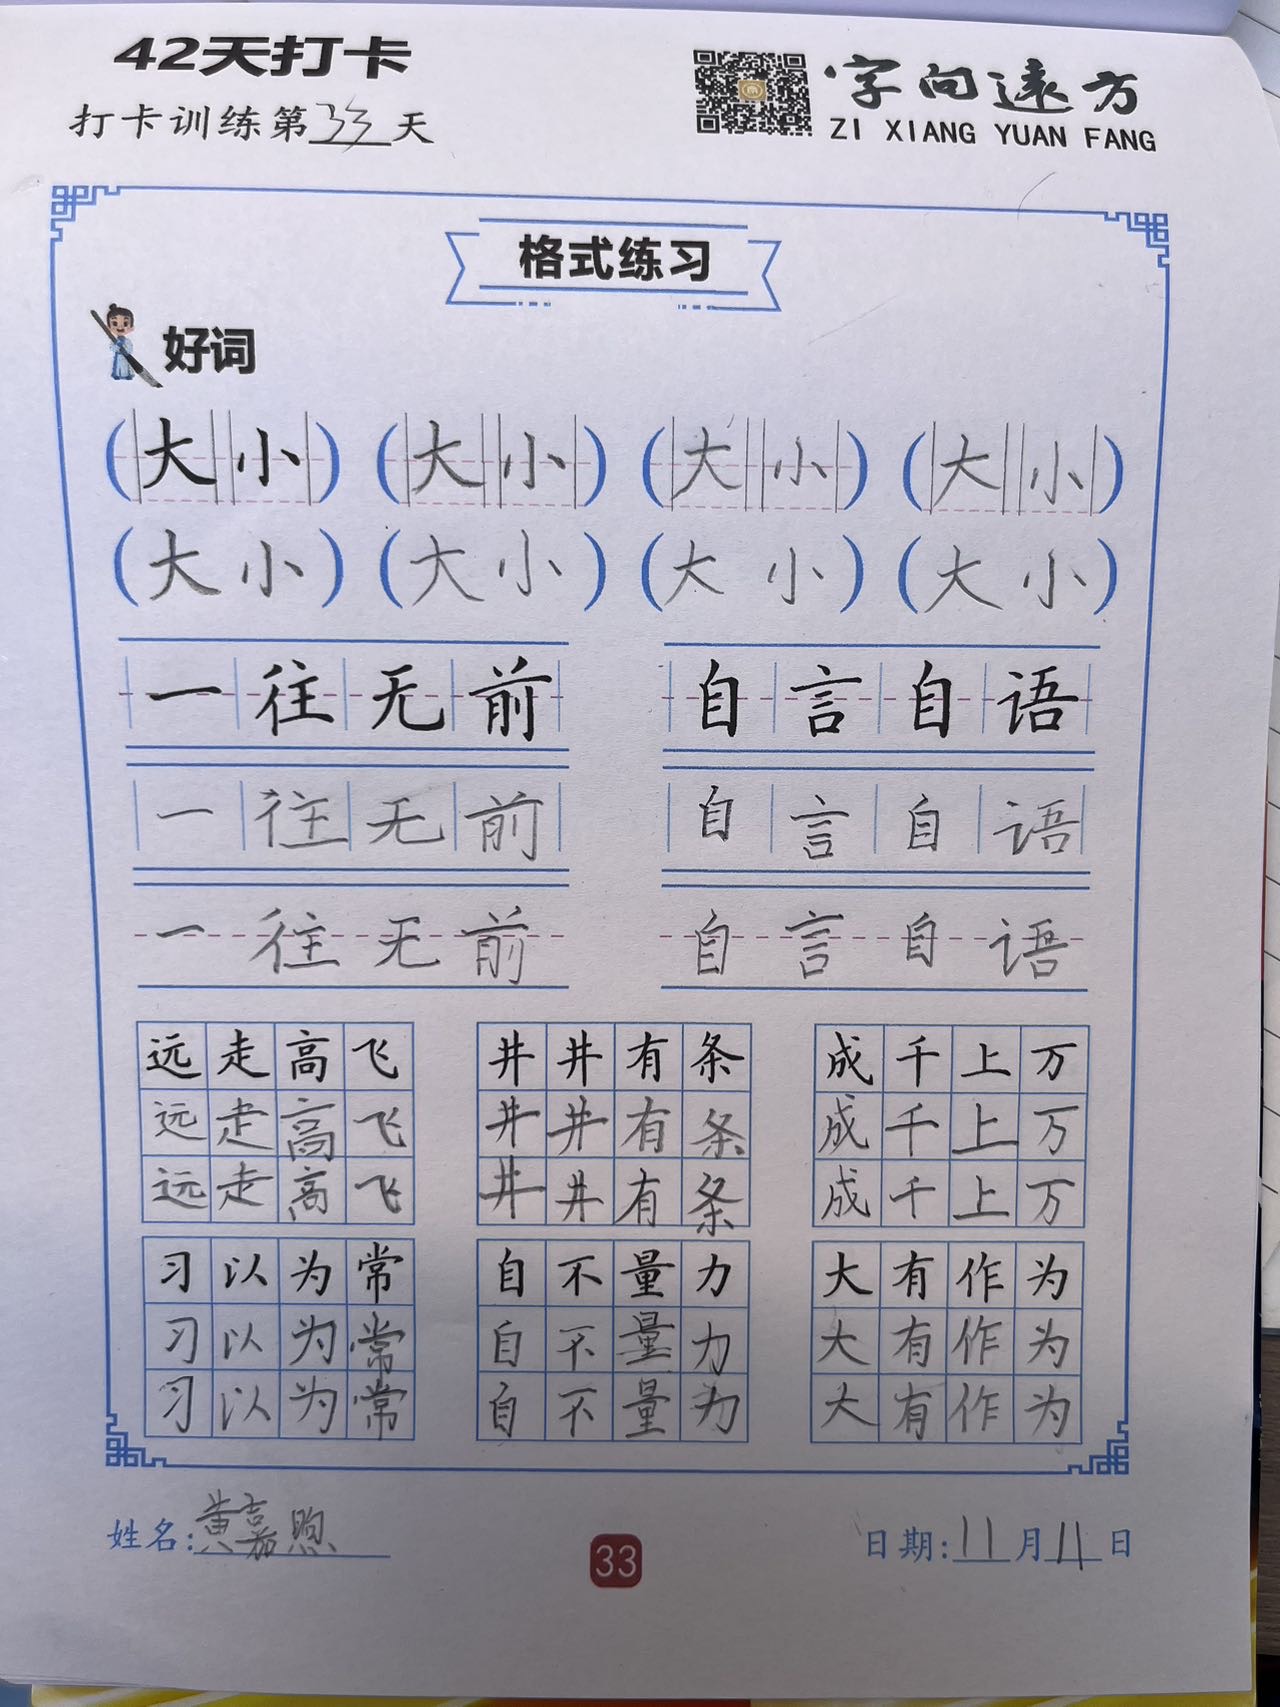 42天打卡
打卡训练第33天
字向遠方
ZI XIANG YUAN FANG
格式练习
好词
(大小) (大小) (大小) (大小)
(大小) (大小) (大小) (大小)
一往无前 自言自语
一往无前 自言自语
一往无前 自言自语
远走高飞 井井有条 成千上万
远走高飞 井井有条 成千上万
远走高飞 井井有条 成千上万
习以为常 自不量力 大有作为
习以为常 自不量力 大有作为
习以为常 自不量为 大有作为
姓名:黄嘉煦 33 日期:11月11日